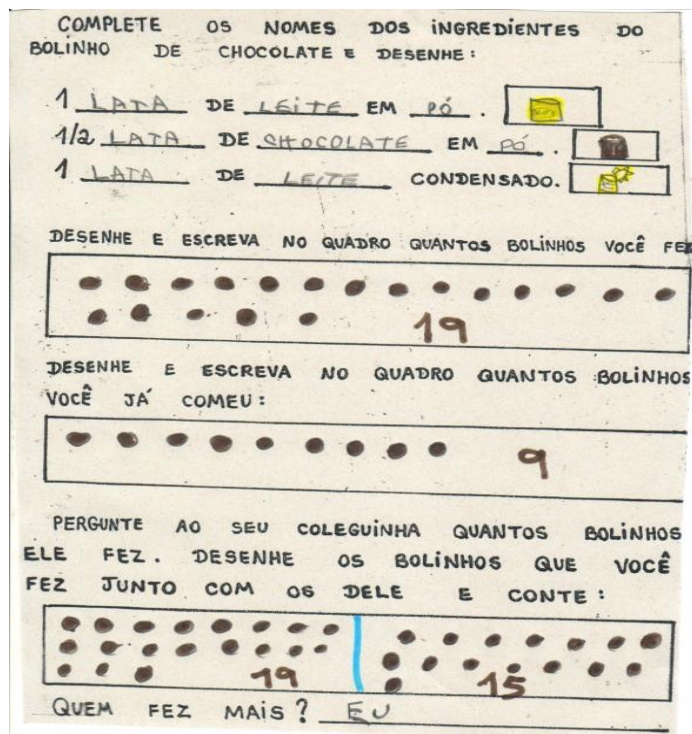 COMPLETE OS NOMES DOS INGREDIENTES DO
BOLINHO DE CHOCOLATE E DESENHE:
1 LATA DE LEITE EM PÓ.
1/2 LATA DE CHOCOLATE EM PÓ.
1 LATA DE LEITE CONDENSADO.
DESENHE E ESCREVA NO QUADRO QUANTOS BOLINHOS VOCÊ FEZ
19
DESENHE E ESCREVA NO QUADRO QUANTOS BOLINHOS
VOCÊ JÁ COMEU:
9
PERGUNTE AO SEU COLEGUINHA QUANTOS BOLINHOS
ELE FEZ. DESENHE OS BOLINHOS QUE VOCÊ
FEZ JUNTO COM OS DELE E CONTE:
19 15
QUEM FEZ MAIS? EU